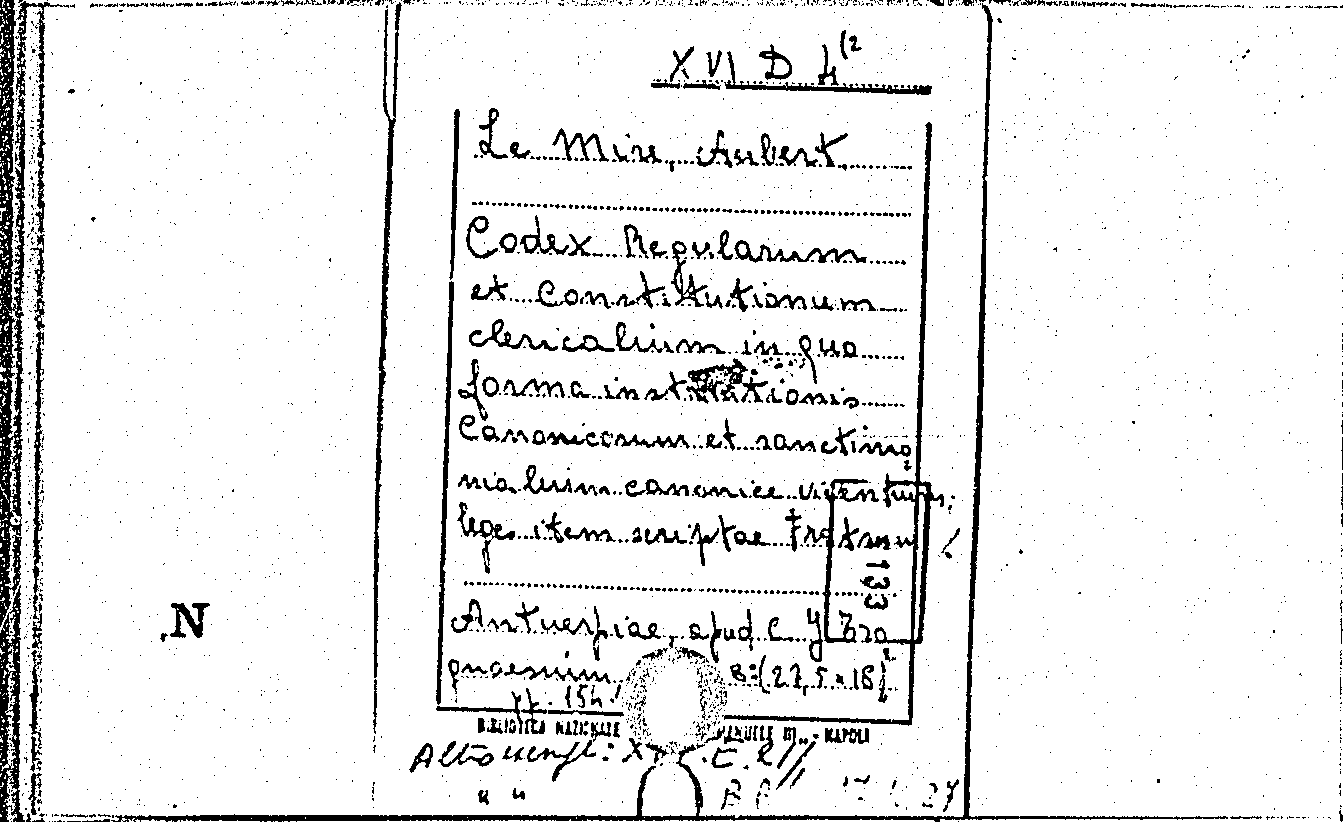 XVI D 4(2
Le Mire, Aubert
Codex Regularum
et Constitutionum
clericalium in quo
forma institutionis
Canonicorum et sanctimo
nialium canonice viventium,
lege item scriptae Fratrum
133
Antuerpiae, apud C. Y Bro
quaesium B: (27,5 × 18)
pp. 154
BIBLIOTECA NAZIONALE III - NAPOLI
Altro esempl: X
" "
N